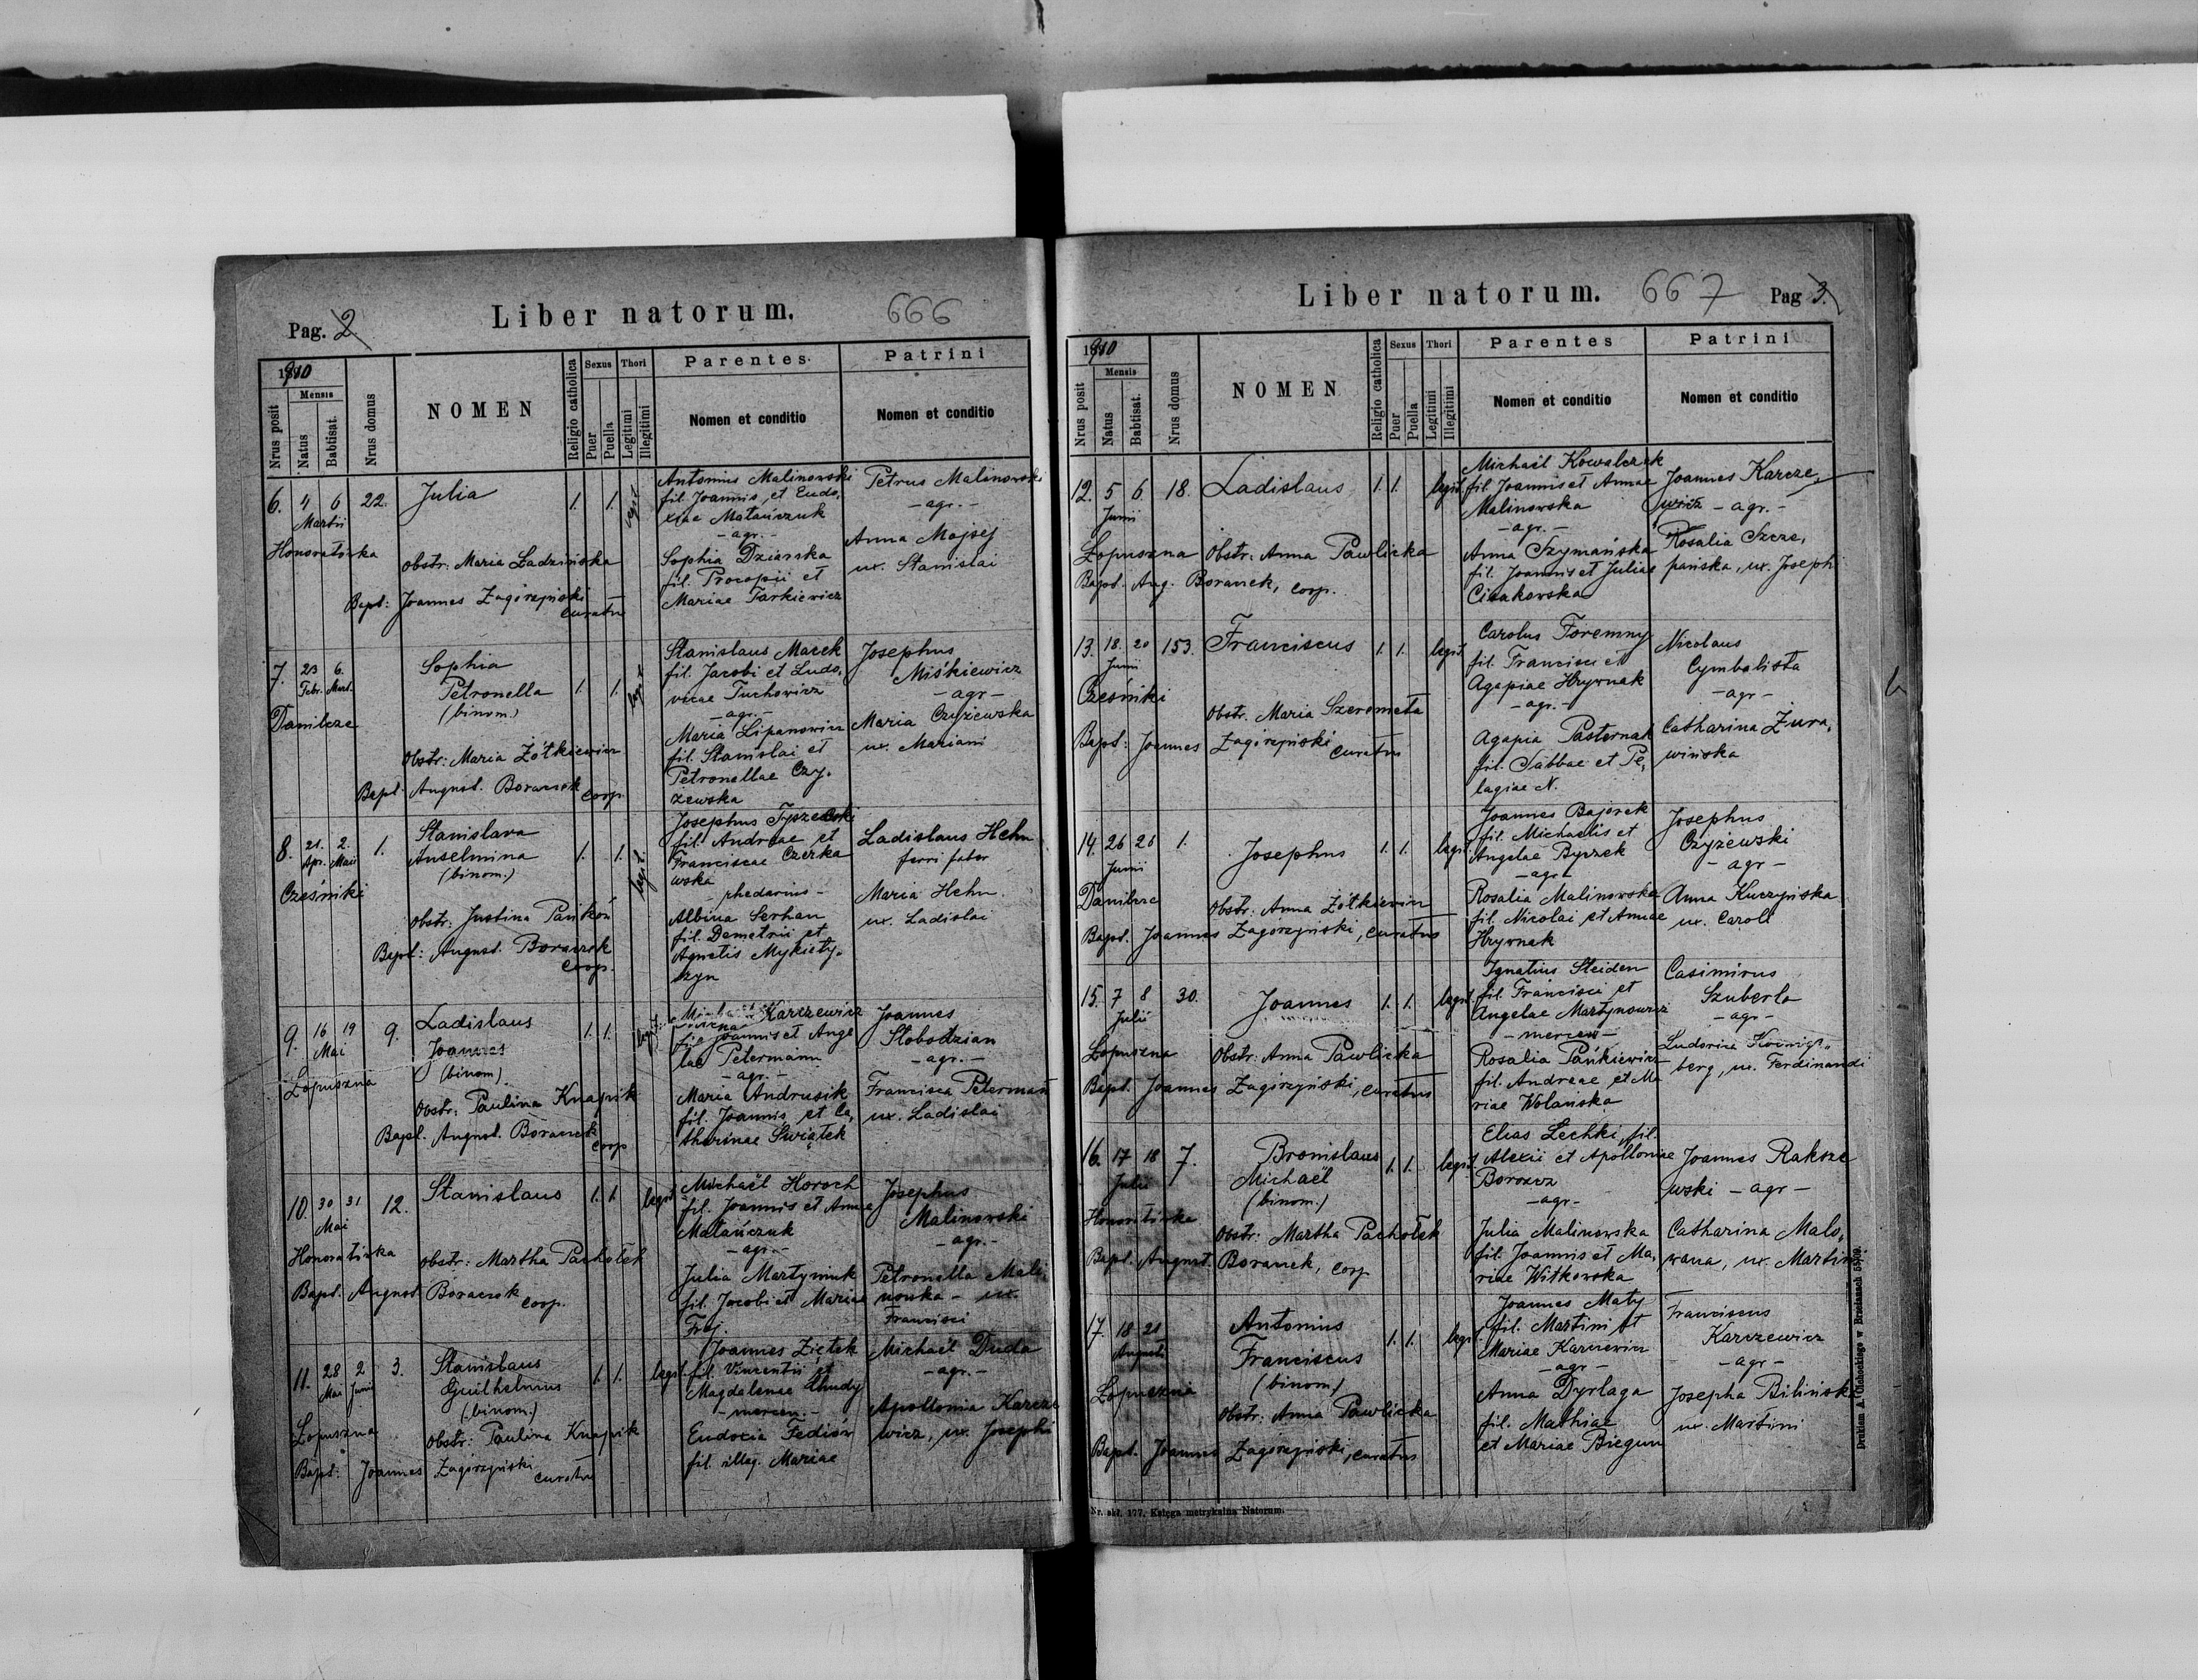 Pag. 2
Liber natorum.
666
1910
Nrus posit
Mensis
Natus
Babtisat.
Nrus domus
NOMEN
Religio catholica
Sexus
Puer
Puella
Thori
Legitimi
Illegitimi
Parentes
Nomen et conditio
Patrini
Nomen et conditio
6. 4 6 22. Julia 1. 1. legit.
Martii
Honoratówka
obstr: Maria Ładzińska
Bapt: Joannes Zagórzyński
curatus
Antonius Malinowski
fil. Joannis et Eudo,
xiae Matańczuk
- agr. -
Sophia Dziarska
fil. Procopii et
Mariae Tarkiewicz
Petrus Malinowski
- agr. -
Anna Mojsej
ux. Stanislai
7. 23 6. Sophia
Febr. Mart. Petronella 1. 1. legit.
(binom.)
Danilcze
Obstr: Maria Żółkiewicz
Bapt. August. Boraczek coop.
Stanislaus Macek
fil. Jacobi et Ludo,
vicae Tuchowicz
- agr. -
Maria Lipanowicz
fil. Stanislai et
Petronellae Czy,
żewska
Josephus
Miśkiewicz
- agr -
Maria Czyżewska
ux. Mariani
8. 21. 2. 1. Stanislava
Apr. Maii Anselmina 1. 1. legit.
(binom.)
Cześniki
obstr. Justina Pańków
Bapt: August. Boraczek
coop.
Josephus Tyszecki
fil. Andreae et
Franciscae Czerka
wska
- rhedarius -
Albina Serhan
fil. Demetrii et
Agnetis Mykiety,
szyn
Ladislaus Hehn
ferri faber
Maria Hehn
ux. Ladislai
9. 16 19 9. Ladislaus 1. 1. legit.
Mai Joannes
(binom)
Łopuszna
obstr: Paulina Knapik
Bapt. August. Boraczek
coop
Karczewicz
fil. Joannis et Ange
lae Petermann
- agr. -
Maria Andrusik
fil. Joannis et Ca,
tharinae Świątek
Joannes
Słobodzian
- agr. -
Francisca Peterman
ux. Ladislai
10. 30 31 12. Stanislaus 1. 1. legit.
Mai
Honoratówka
obstr: Martha Pachołek
Bapt. August Boraczek
coop.
Michaël Horoch
fil. Joannis et Annae
Matańczuk
- agr. -
Julia Martyniuk
fil. Jacobi et Mariae
Fraj.
Josephus
Malinowski
- agr. -
Petronella Mali
nowska - ux.
Francisci
11. 28 2 3. Stanislaus 1. 1. legit.
Mai Junii Guilhelmus
(binom.)
Łopuszna
obstr: Paulina Knapik
Bapt. Joannes Zagórzyński
curatus
Joannes Ziętek
fil. Vincentii et
Magdalenae Chudy
- mercen. -
Eudocia Fediów
fil. illeg. Mariae
Michaël Duda
- agr. -
Apollonia Karcze
wicz, ux. Josephi
Liber natorum.
667
Pag 3.
1910
Nrus posit
Mensis
Natus
Babtisat.
Nrus domus
NOMEN
Religio catholica
Sexus
Puer
Puella
Thori
Legitimi
Illegitimi
Parentes
Nomen et conditio
Patrini
Nomen et conditio
12. 5 6 18. Ladislaus 1. 1. legit.
Junii
Łopuszna Obstr: Anna Pawlicka
Bapt. Aug. Boraczek, coop.
Michaël Kowalczuk
fil. Joannis et Annae
Malinowska
- agr. -
Anna Szymańska
fil. Joannis et Juliae
Cisakowska
Joannes Karcze,
wicz - agr. -
Rosalia Szcze,
pańska, ux. Josephi
13. 18. 20 153. Franciscus 1. 1. legit.
Junii
Cześniki
Obstr. Maria Szeremeta
Bapt: Joannes Zagórzyński curatus
Carolus Foremny
fil. Francisci et
Agapiae Hrywnak
- agr. -
Agapia Pasternak
fil. Sabbae et Pe,
lagiae N.
Nicolaus
Cymbalista
- agr -
Catharina Żura,
wińska
14. 26 28 1. Josephus 1. 1. legit.
Junii
Danilcze
Obstr: Anna Żółkiewicz
Bapt. Joannes Zagórzyński, curatus
Joannes Bajorek
fil. Michaelis et
Angelae Byczek
- agr -
Rosalia Malinowska
fil. Nicolai et Annae
Hrywnak
Josephus
Czyżewski
- agr -
Anna Kuczyńska
ux. Caroli
15. 7 8 30. Joannes 1. 1. legit.
Julii
Łopuszna Obstr: Anna Pawlicka
Bapt. Joannes Zagórzyński, curatus
Ignatius Steiden
fil. Francisci et
Angelae Martynowicz
- mercen -
Rosalia Pańkiewicz
fil. Andreae et Ma
riae Wolańska
Casimirus
Szuberla
- agr -
Ludovica Koenigs,,
berg, ux. Ferdinandi
16. 17 18 7. Bronislaus 1. 1. legit.
Julii Michaël
(binom.)
Honoratówka
Obstr: Martha Pachołek
Bapt. August. Boraczek, coop
Elias Lechki, fil.
Alexii et Apolloniae
Borowcz
- agr -
Julia Malinowska
fil. Joannis et Ma,
riae Witkowska
Joannes Raksze
wski - agr -
Catharina Malo,
wana, ux. Martini
17. 18 21 Antonius 1. 1. legit.
Augusti Franciscus
(binom)
Łopuszna
Obstr: Anna Pawlicka
Bapt. Joannes Zagórzyński, curatus
Joannes Maty
fil. Martini et
Mariae Karczewicz
- agr -
Anna Dyrlaga
fil. Mathiae
et Mariae Biegun
Franciscus
Karczewicz
- agr -
Josepha Bilińska
ux. Martini
Nr. skł. 177. Księga metrykalna Natorum.